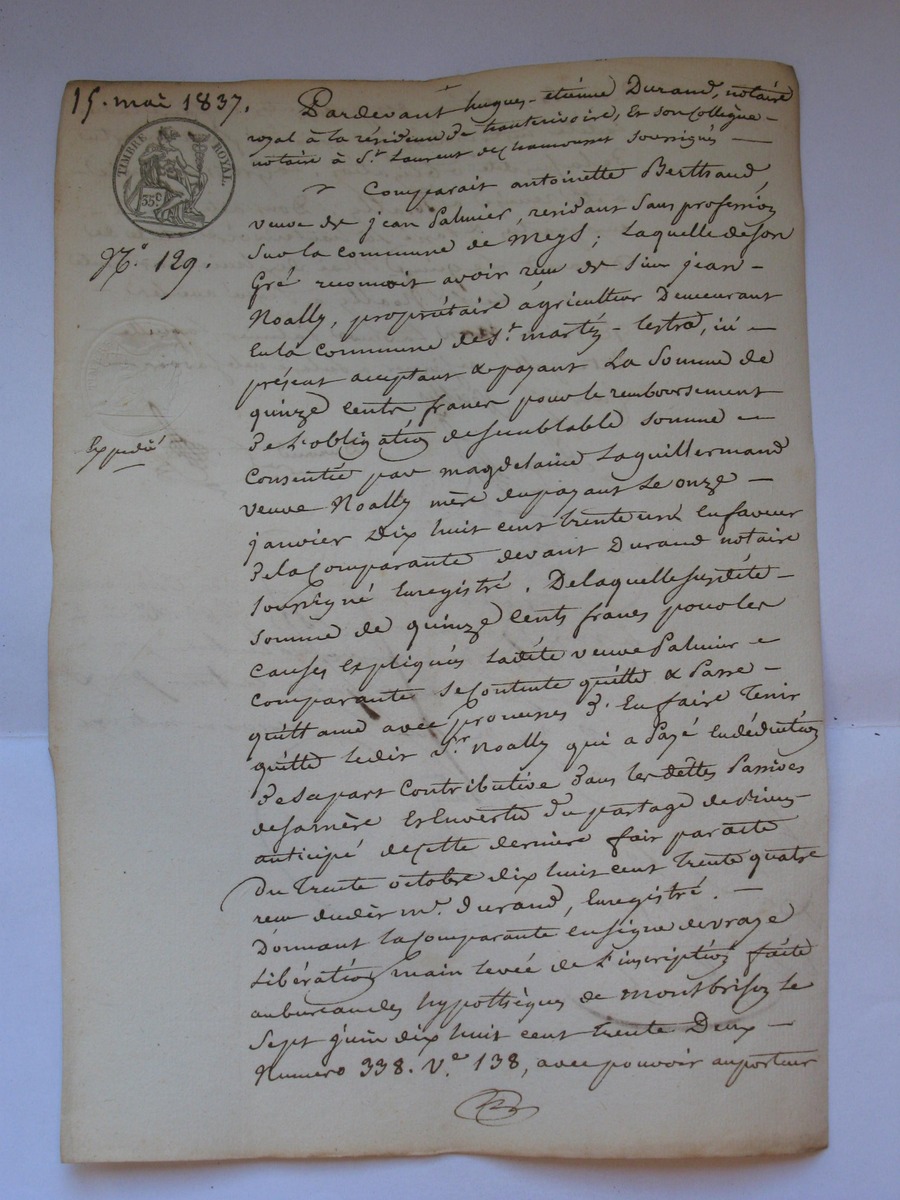 15. mai 1837.
TIMBRE ROYAL
35 c
N.° 129.
Expédié
Pardevant hugues-étienne Durand, notaire
royal à la résidence de hauterivoire, Et son Collègue -
notaire à S.t Laurent de Chamousset soussignés —
Comparait antoinette Berthaud,
veuve de jean Palmier, résidant Sans profession
Sur la commune de Meys ; Laquelle de Son
Gré reconnoit avoir reçu de Sieur jean -
Noally, propriétaire agriculteur Demeurant
En la Commune de S.t martin - lestra, ici -
présent acceptant & payant La Somme de
quinze Cents francs pour le remboursement
De L'obligation de Semblable somme -
Consentie par magdelaine Laguillermand
veuve Noally mère du payant Le onze -
janvier Dix huit cent trente un En faveur
De la Comparante devant Durand notaire
Soussigné Enregistré. De laquelle Susdite -
Somme de quinze Cents francs pour les
Causes Expliqués Ladite veuve Palmier -
Comparante Se Contente quitte & Passe -
quittance avec promesses D'En faire Tenir
quitte ledit S.r Noally qui a Payé En déduction
De Sa part Contributive Dans les dettes Passives
de Sa mère Et En vertu Du partage de Biens -
anticipé de Cette dernière fait par acte
Du trente octobre dix huit cent trente quatre
reçu dudit m.e Durand, Enregistré. —
Donnant la Comparante en Signe de vraye
Libération main levée de L'inscription faite
au bureau des hypothèques de Montbrison le
Sept juin dix huit cent trente Deux —
Numéro 338. V.e 138, avec pouvoir au porteur